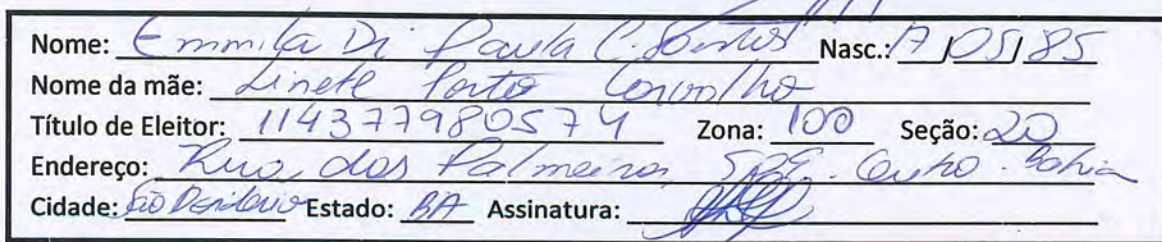 Nome: Emmila Di Paula C. Santos Nasc.: 17/05/85
Nome da mãe: Linete Porto Carvalho
Título de Eleitor: 114377980574 Zona: 100 Seção: 20
Endereço: Rua das Palmeiras, Bahia
Cidade: São Desidério Estado: BA Assinatura: